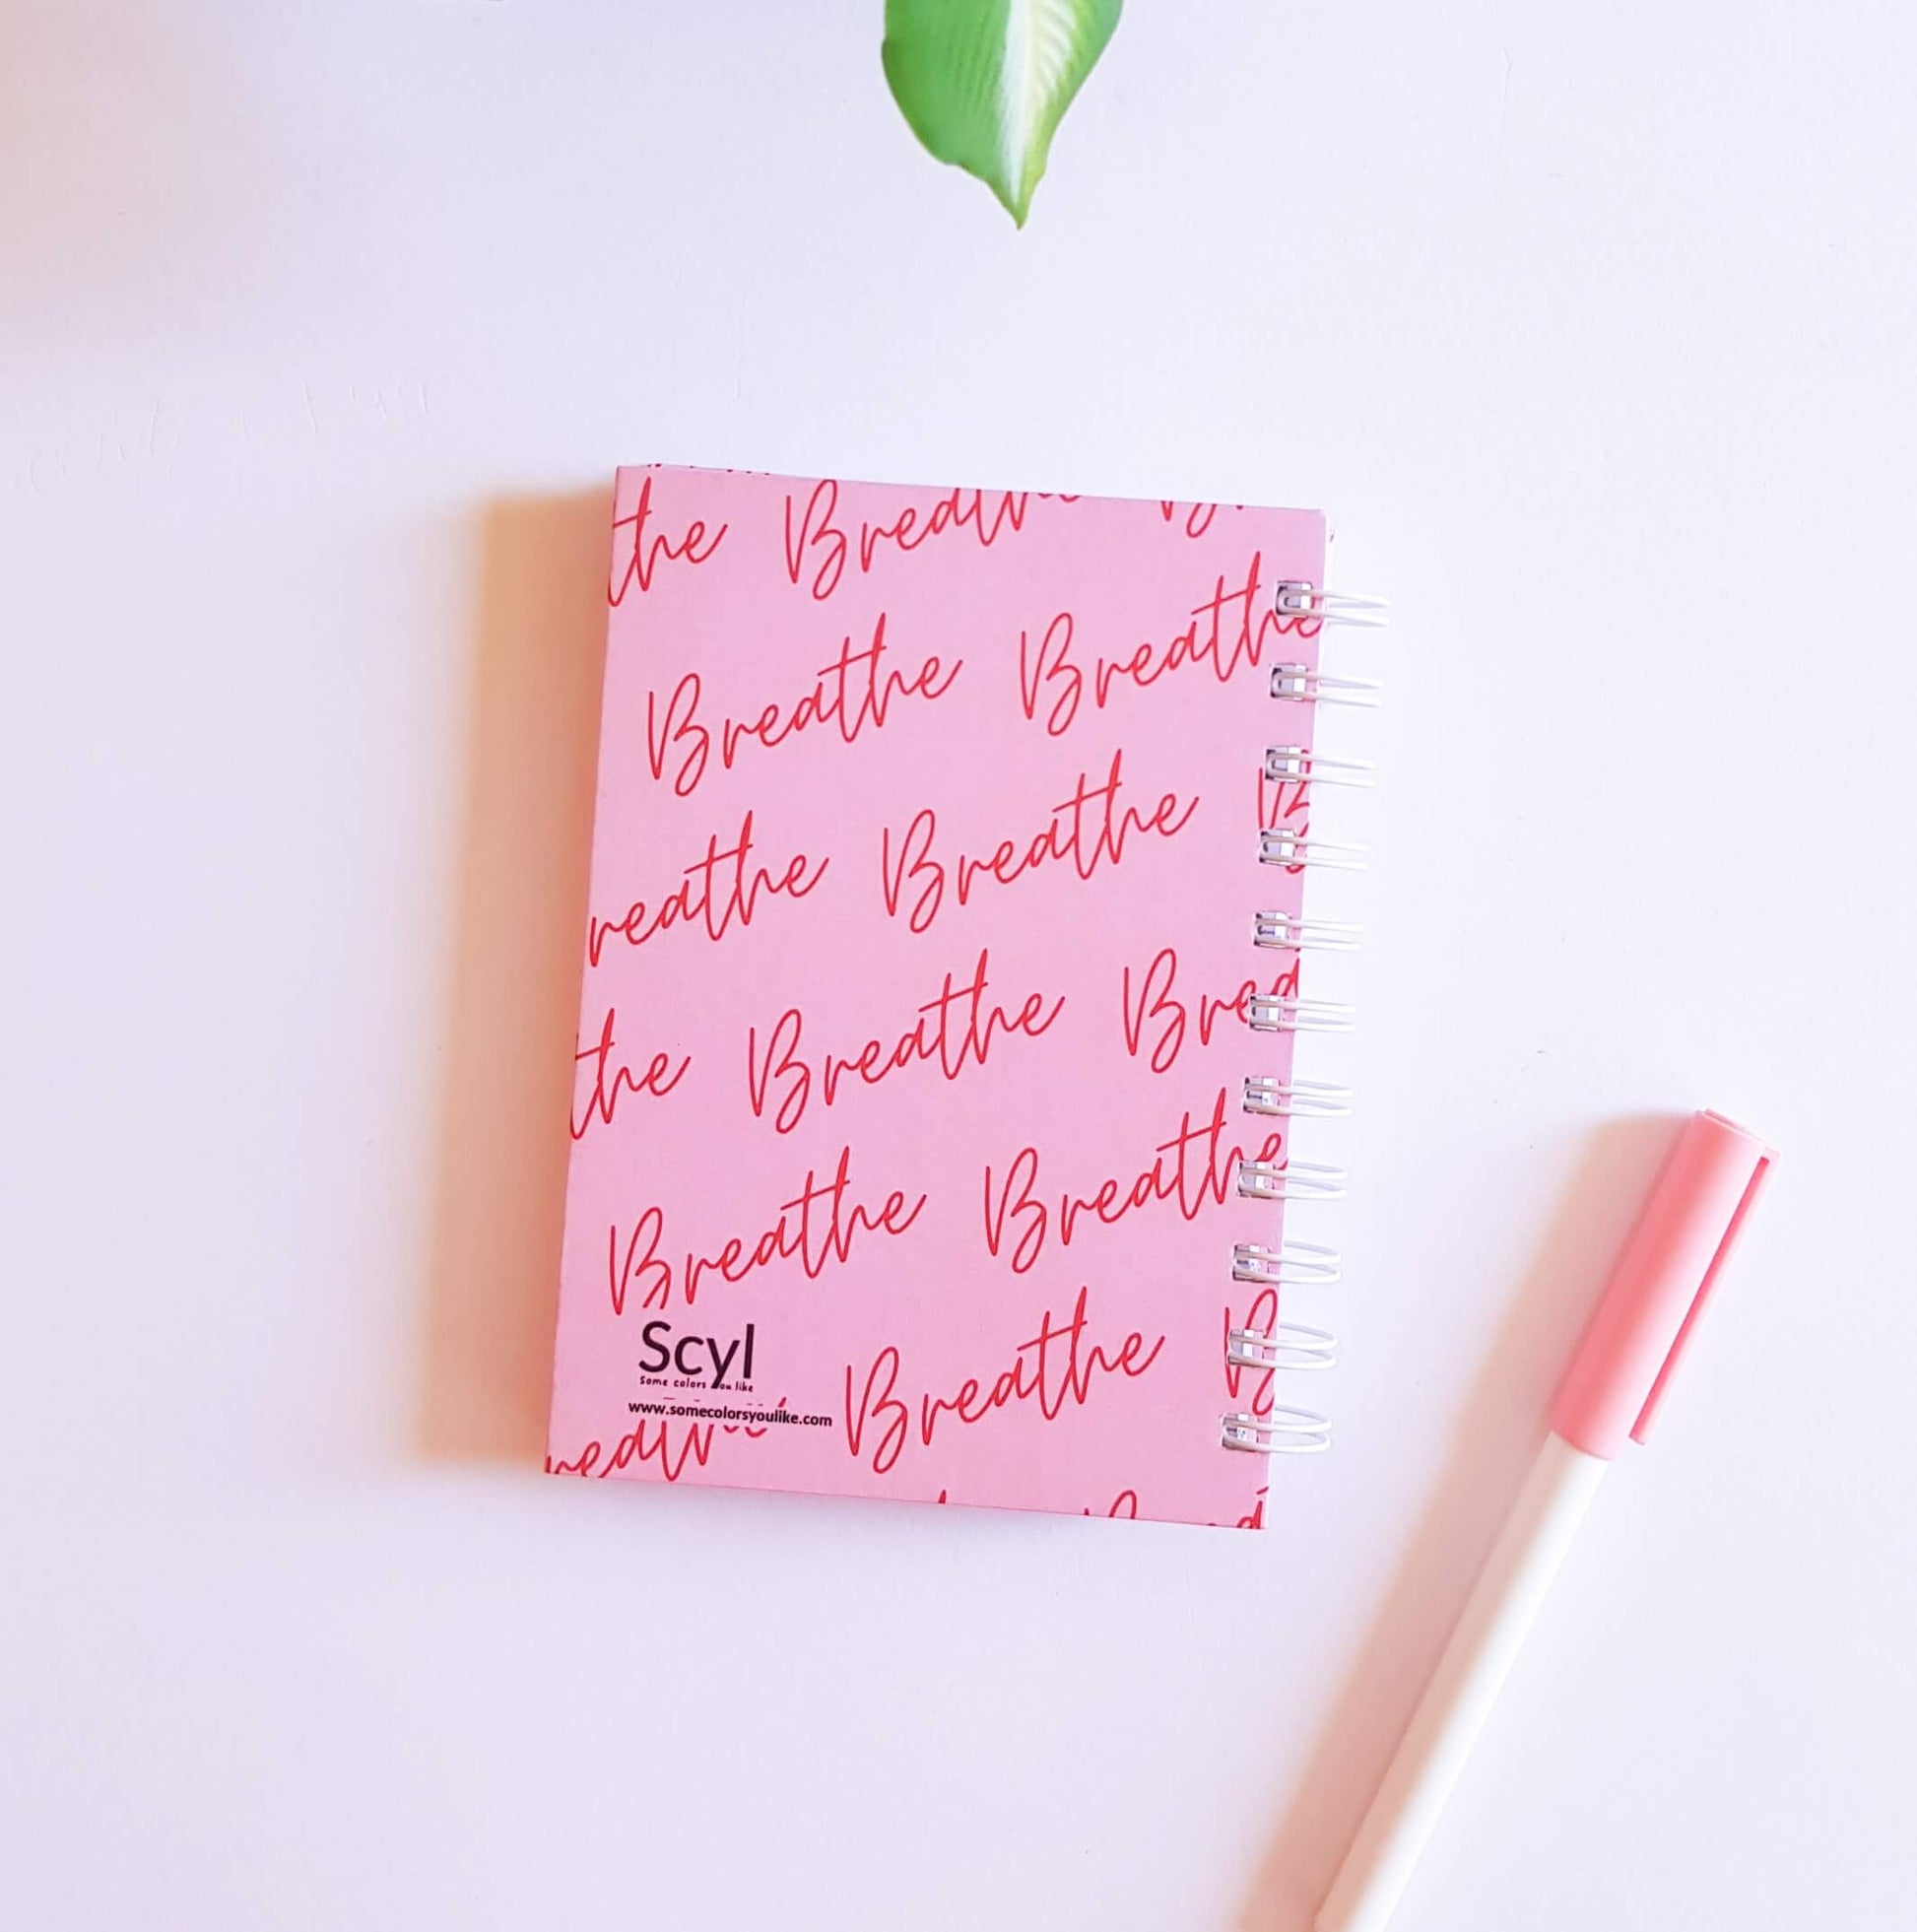 the Breathe
Breathe Breathe
reathe Breathe B
the Breathe Brea
Breathe Breathe
Breathe B
Scyl
Some colors you like
www.somecolorsyoulike.com